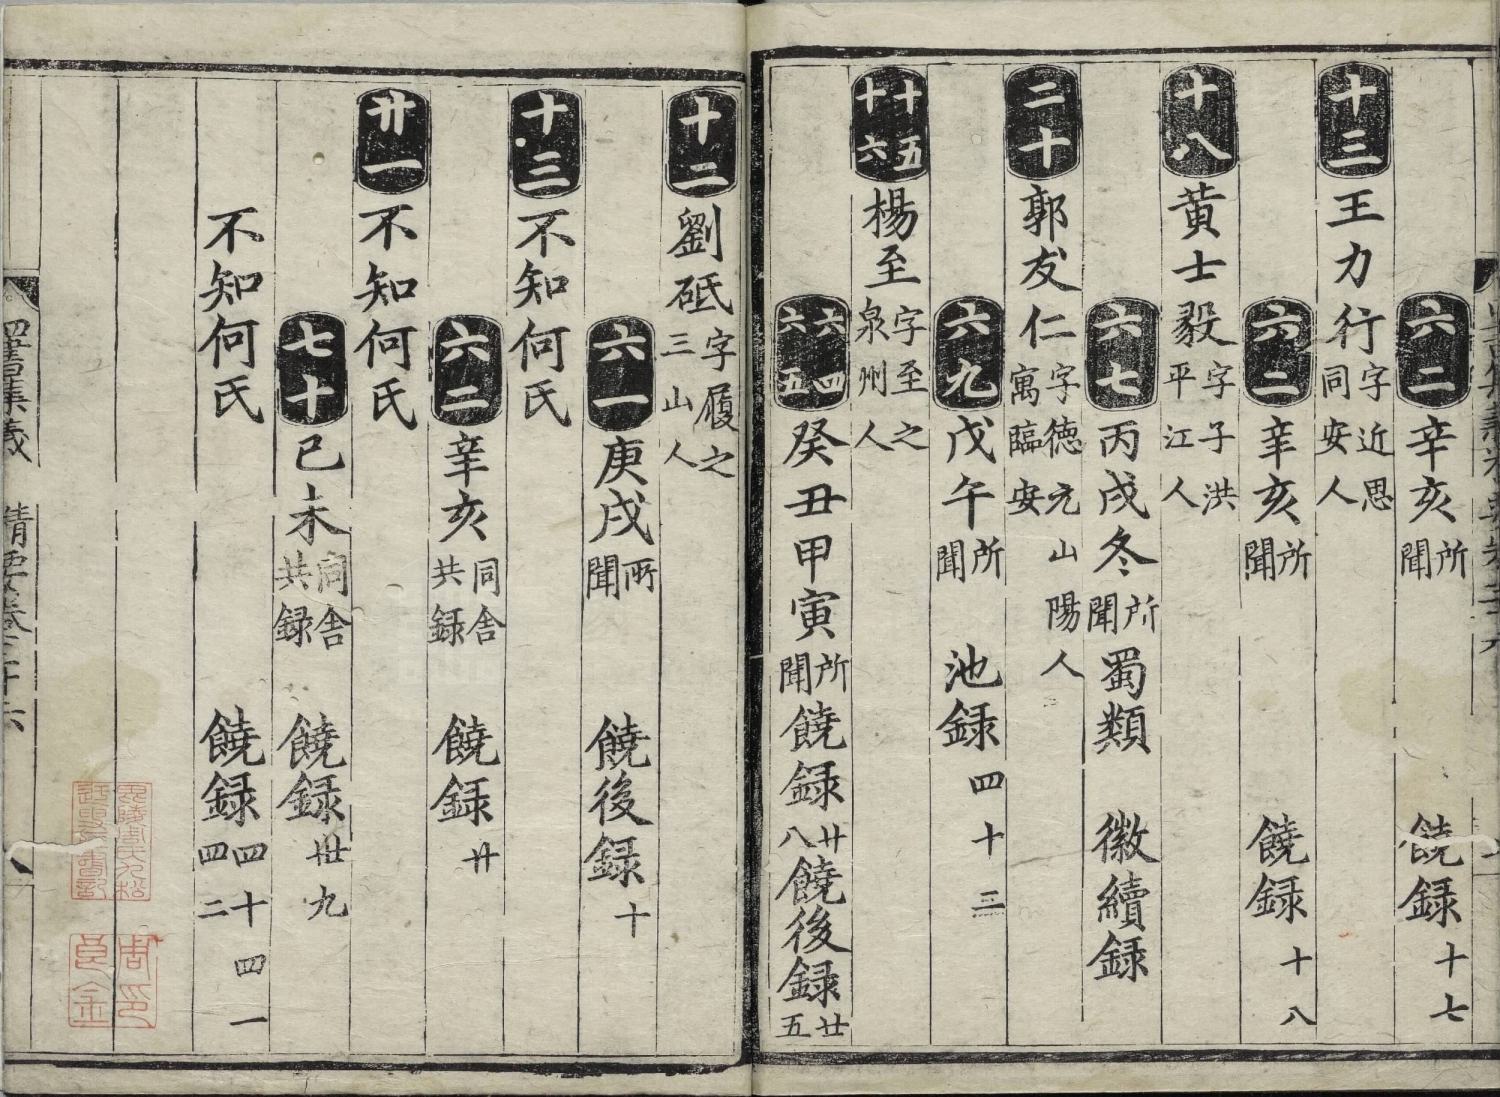 六二 辛亥所聞 饒録十七
十三 王力行字近思同安人
六二 辛亥所聞 饒録十八
十八 黄士毅字子洪平江人
六七 丙戌冬所聞 蜀類 徽續録
二十 郭友仁字德元山陽人寓臨安
六九 戊午所聞 池録四十三
十五十六 楊至字至之泉州人
六四六五 癸丑甲寅所聞 饒録廿八 饒後録廿五
十二 劉砥字履之三山人
六一 庚戌所聞 饒後録十
十三 不知何氏
六二 辛亥同舎共録 饒録廿
廿一 不知何氏
七十 己未同舎共録 饒録卅九
不知何氏 饒録四十四一四二